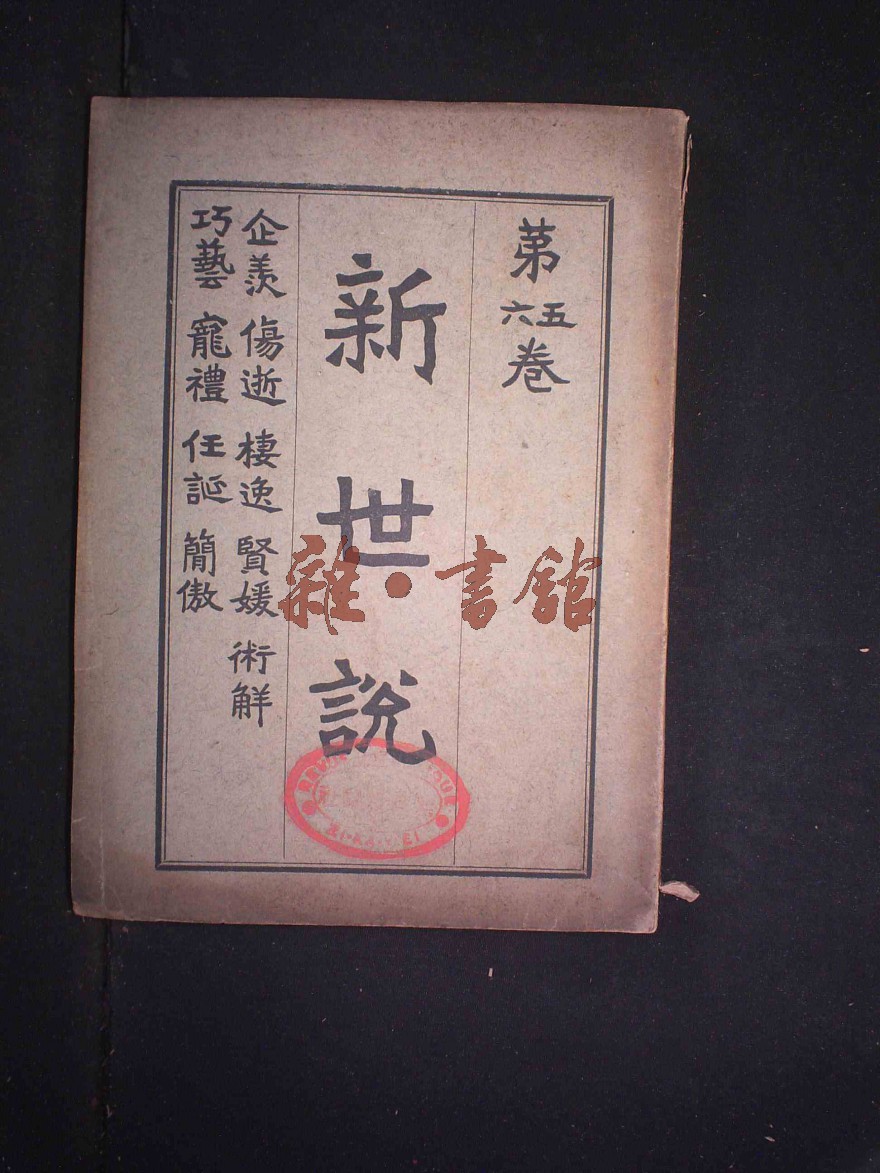 第五六卷
新世說
企羨 傷逝 棲逸 賢媛 術解
巧藝 寵禮 任誕 簡傲
雜·書館